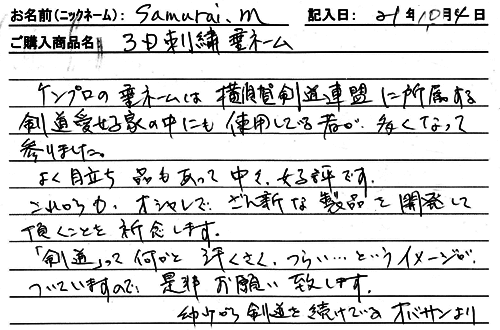 お名前(ニックネーム): Samurai.m 記入日: 21年10月4日
ご購入商品名: 3日刺繍垂ネーム
ケンプロの垂ネームは横須賀剣道連盟に所属する
剣道愛好家の中にも使用している者が多くなって
参りました。
よく目立ち品もあって中々、好評です。
これからも、オシャレでざん新な製品を開発して
頂くことを祈念します。
「剣道」って何かと汗くさく、つらい…というイメージが
ついていますので是非お願い致します。
幼少から剣道を続けているオバサンより